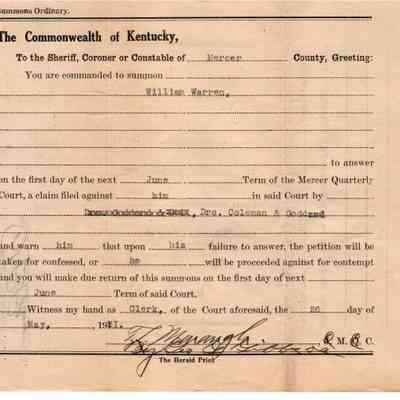 Summons Ordinary.
The Commonwealth of Kentucky,
To the Sheriff, Coroner or Constable of Mercer County, Greeting:
You are commanded to summon
William Warren,
to answer
on the first day of the next June Term of the Mercer Quarterly
Court, a claim filed against him in said Court by
Drs. Coleman & Goddard
and warn him that upon his failure to answer, the petition will be
taken for confessed, or he will be proceeded against for contempt
and you will make due return of this summons on the first day of next
June Term of said Court.
Witness my hand as Clerk, of the Court aforesaid, the 26 day of
May, 1921.
M. C.
By
The Herald Print